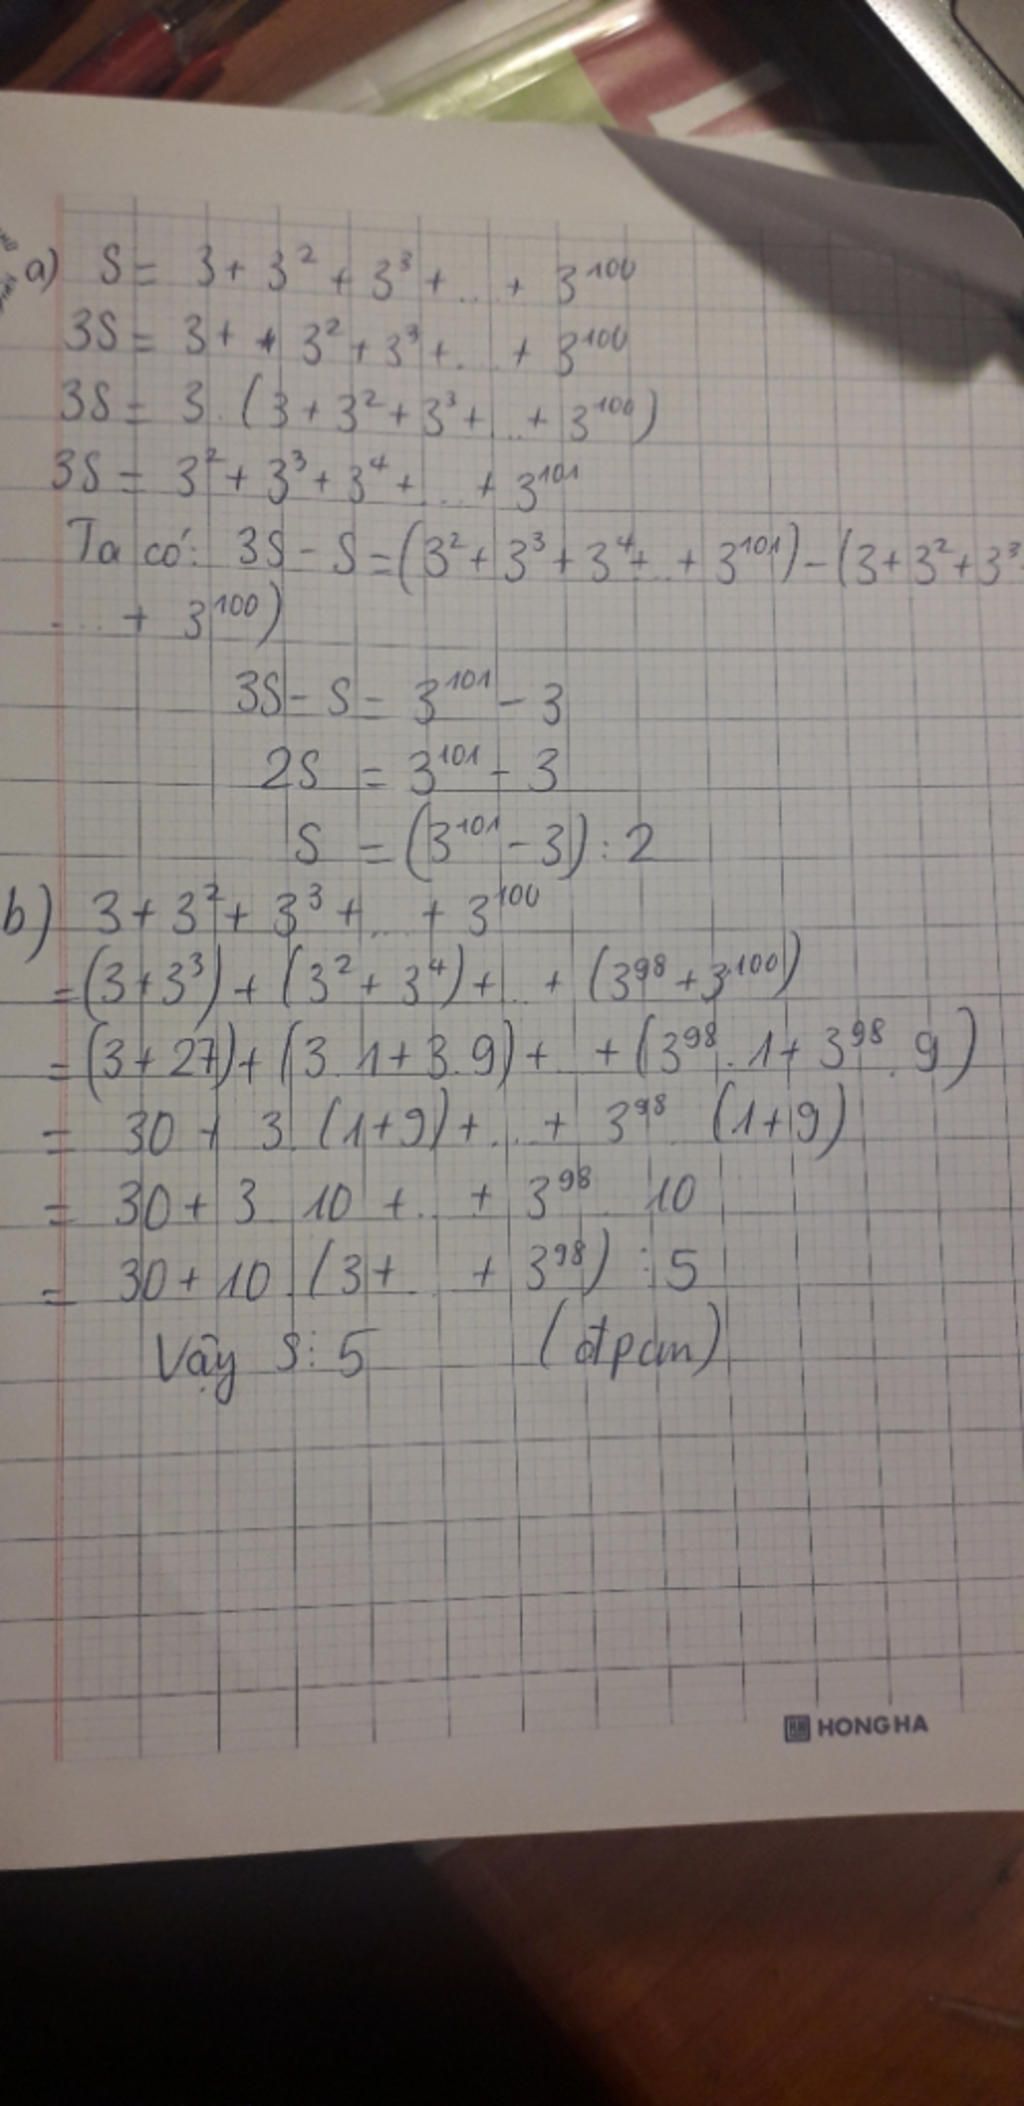 a) S = 3 + 3² + 3³ + ... + 3¹⁰⁰
3S = 3 + + 3² + 3³ + ... + 3¹⁰⁰
3S = 3 . (3 + 3² + 3³ + ... + 3¹⁰⁰)
3S = 3² + 3³ + 3⁴ + ... + 3¹⁰¹
Ta có: 3S - S = (3² + 3³ + 3⁴ + .. + 3¹⁰¹) - (3 + 3² + 3³
... + 3¹⁰⁰)
3S - S = 3¹⁰¹ - 3
2S = 3¹⁰¹ - 3
S = (3¹⁰¹ - 3) : 2
b) 3 + 3² + 3³ + ... + 3¹⁰⁰
= (3 + 3³) + (3² + 3⁴) + ... + (3⁹⁸ + 3¹⁰⁰)
= (3 + 27) + (3 . 1 + 3 . 9) + ... + (3⁹⁸ . 1 + 3⁹⁸ . 9)
= 30 + 3 . (1 + 9) + ... + 3⁹⁸ (1 + 9)
= 30 + 3 10 + ... + 3⁹⁸ 10
= 30 + 10 (3 + ... + 3⁹⁸) ⋮ 5
Vậy S ⋮ 5 (đpcm)
HONG HA